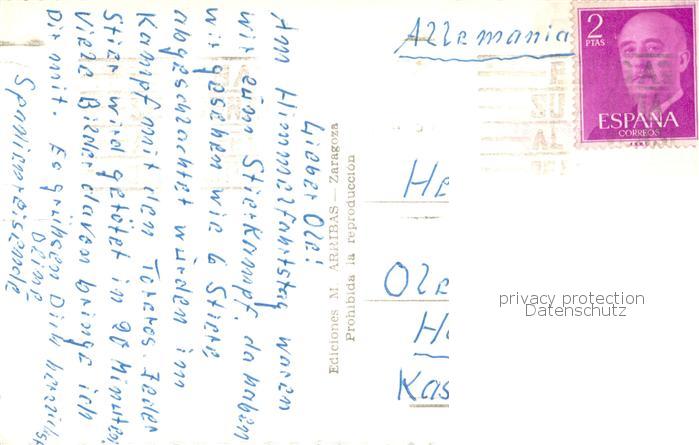 Lieber Ole!
Am Himmelfahrtstag waren
wir beim Stierkampf, da haben
wir gesehen wie 6 Stiere
abgeschlachtet wurden im
Kampf mit den Toreros. Jeder
Stier wird getötet in 20 Minuten
Viele Bilder davon bringe ich
Dir mit. Es grüßen Dich herzlichst
Deine
Spanienreisende
Ediciones M. ARRIBAS — Zaragoza
Prohibida la reproducción
Allemania
2
PTAS
ESPAÑA
CORREOS
He
Ole
Ha
Kas
privacy protection
Datenschutz